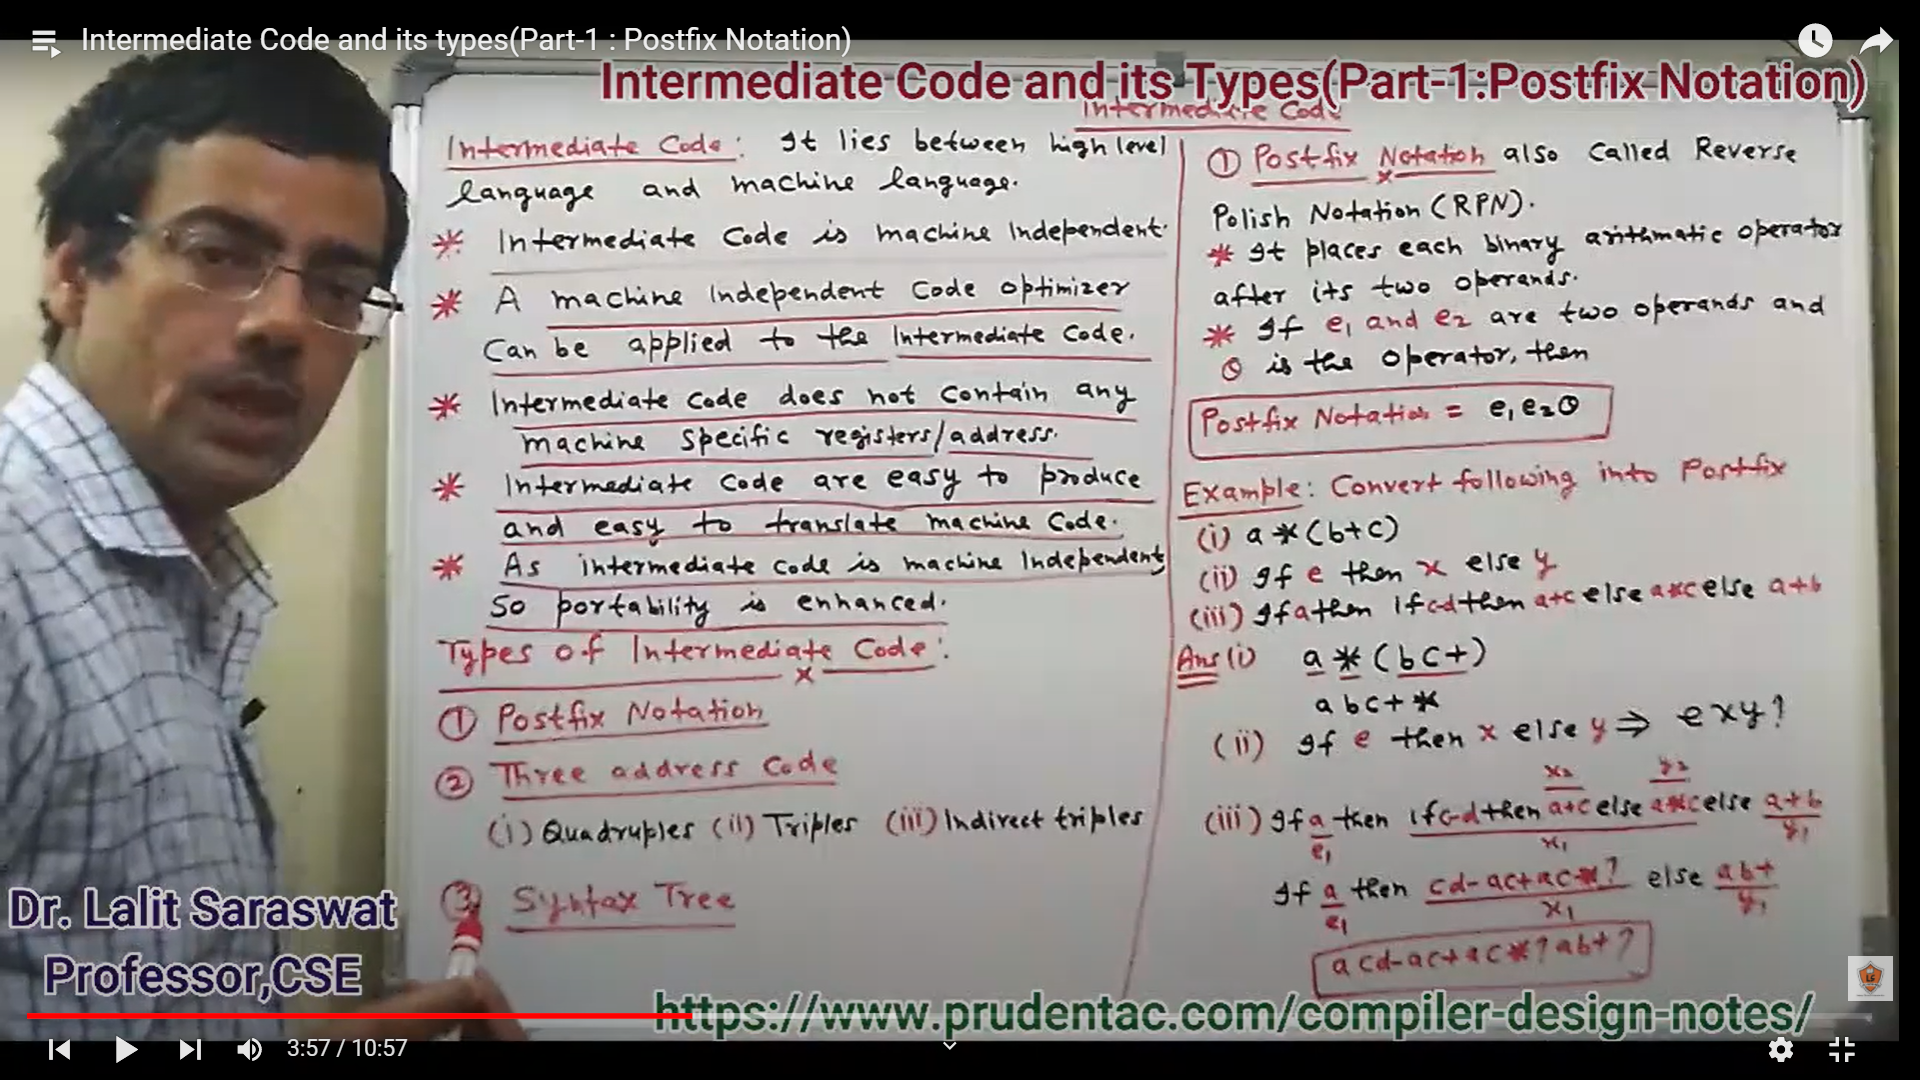 Intermediate Code and its types(Part-1 : Postfix Notation)
Intermediate Code and its Types(Part-1:Postfix Notation)
Intermediate Code
Intermediate Code: It lies between high level
language and machine language.
* Intermediate Code is machine Independent.
* A machine Independent Code optimizer
Can be applied to the Intermediate Code.
* Intermediate Code does not Contain any
machine specific registers/address.
* Intermediate Code are easy to produce
and easy to translate machine Code.
* As intermediate code is machine Independent
So portability is enhanced.
Types of Intermediate Code:
① Postfix Notation
② Three address Code
(i) Quadruples (ii) Triples (iii) Indirect triples
③ Syntax Tree
① Postfix Notation also Called Reverse
Polish Notation (RPN).
* It places each binary arithmatic operator
after its two operands.
* If e1 and e2 are two operands and
θ is the operator, then
Postfix Notation = e1 e2 θ
Example: Convert following into Postfix
(i) a * (b+c)
(ii) If e then x else y
(iii) If a then if c-d then a+c else a*c else a+b
Ans (i) a * (bc+)
abc+*
(ii) If e then x else y ⇒ exy?
x2 y2
(iii) If a then if c-d then a+c else a*c else a+b
e1 x1 y1
If a then cd-ac+ac*? else ab+
e1 x1 y1
acd-ac+ac*?ab+?
Dr. Lalit Saraswat
Professor,CSE
https://www.prudentac.com/compiler-design-notes/
3:57 / 10:57